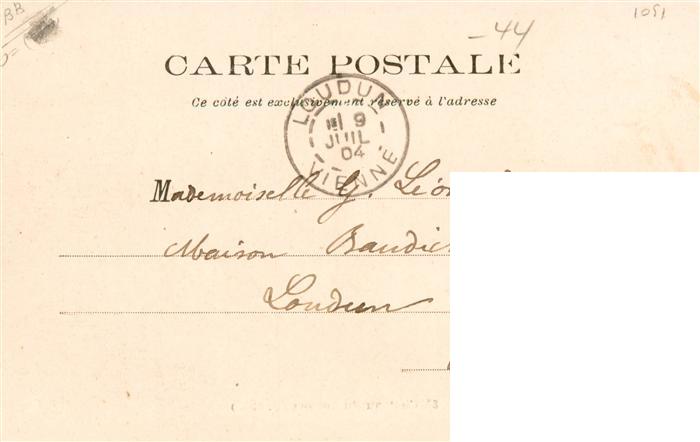 BB
-44
1051
CARTE POSTALE
Ce côté est exclusivement réservé à l'adresse
LOUDUN
9
JUIL
04
VIENNE
Mademoiselle G.
Maison
Loudun